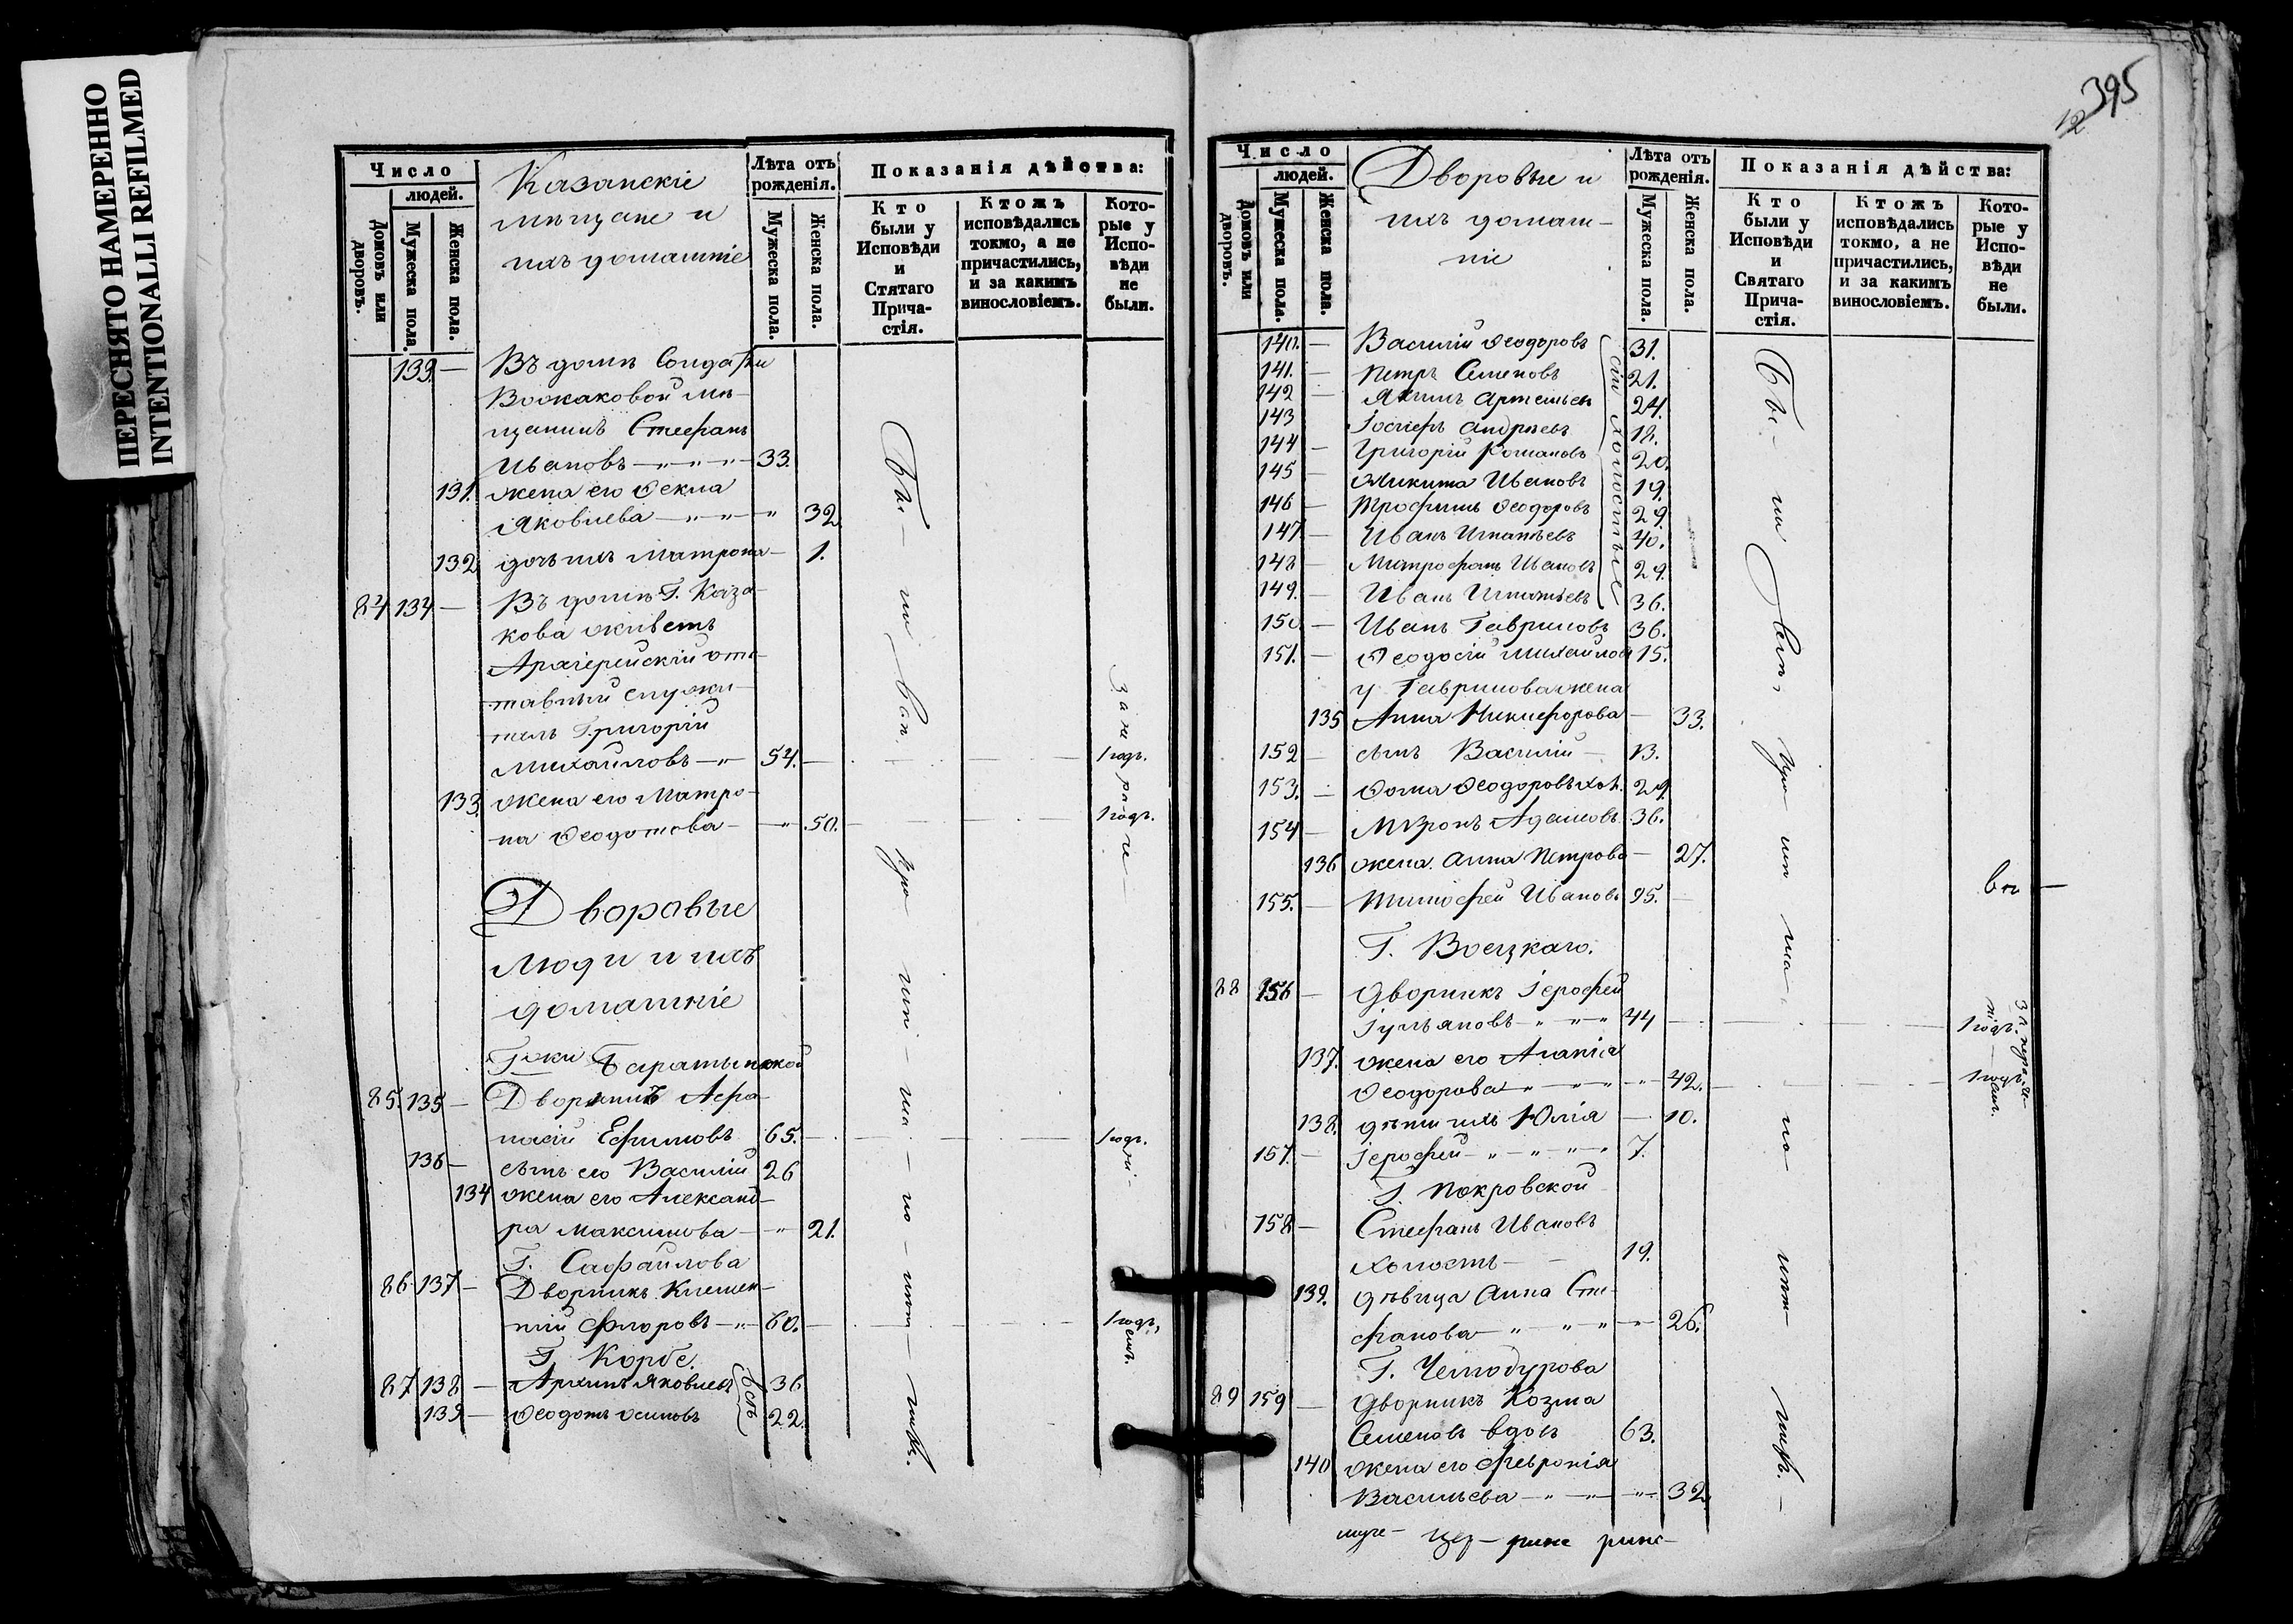 ПЕРЕСНЯТО НАМЕРЕННО
INTENTIONALLI REFILMED
395
12
Число
людей.
Домовъ или дворовъ.
Мужеска пола.
Женска пола.
Казанскіе
мѣщане и
ихъ домашніе
Лѣта отъ рожденія.
Мужеска пола.
Женска пола.
Показанія дѣйства:
Кто были у Исповѣди и Стятаго Прича-стія.
Ктожъ исповѣдались токмо, а не причастились, и за какимъ винословіемъ.
Кото-рые у Испо-вѣди не были.
133. — Въ домѣ Солдатки
мѣ-
щанинъ Стефанъ
Ивановъ — 33.
131. жена его Ѳекла
Яковлева — 32
132 дочь ихъ Матрона — 1.
84 134 — Въ домѣ Г. Каза-
кова живетъ
Архіерейскій отс-
тавный служи-
тель Григорій
Михайловъ — 54. — 1 годъ.
133. жена его Матро-
на Ѳеодотова — 50. — 1 годъ.
Дворовые
люди и ихъ
домашніе
Г-жи Баратынской
85. 135 — Дворникъ Афа-
насій Ефимовъ 65. — 1 годъ.
136 — сынъ его Василій 26
134 жена его Александ-
ра Максимова — 21.
Г.
86 137 — Дворникъ Климен-
тій Флоровъ — 60. — 1 годъ.
Г. Корбе.
87 138 — Архипъ Яковлевъ 36
139 — Ѳеодотъ Осиповъ 22.
Число
людей.
Домовъ или дворовъ.
Мужеска пола.
Женска пола.
Дворовые и
ихъ домаш-
ніе
Лѣта отъ рожденія.
Мужеска пола.
Женска пола.
Показанія дѣйства:
Кто были у Исповѣди и Святаго Прича-стія.
Ктожъ исповѣдались токмо, а не причастились, и за какимъ винословіемъ.
Кото-рые у Испо-вѣди не были.
140. — Василій Ѳеодоровъ 31.
141. — Петръ Семеновъ 21.
142 — Якимъ Артемьевъ 24.
143 Іосифъ Андреевъ 18.
144 — Григорій Романовъ 20.
145 — Никита Ивановъ 19.
146 — Трофимъ Ѳеодоровъ 29.
147 — Иванъ Игнатьевъ 40.
148 — Митрофанъ Ивановъ 29.
149. — Иванъ Игнатьевъ 36.
сіи холостые
150 — Иванъ Гавриловъ 36.
151. — Ѳеодосій Михайловъ 15.
у Гаврилова жена
135 Анна Никифорова — 33.
152 — сынъ Василій — 13.
153. — Ѳома Ѳеодоровъ хол. 29.
154 — Миронъ Адамовъ 36.
136 жена Анна Петрова — 27.
155. — Тимофей Ивановъ 95. —
Г. Воецкаго.
88 156 — Дворникъ Іерофей
44 — 1 годъ.
137. жена его
Ѳеодорова — 42. — 1 годъ.
138. дѣти ихъ Юлія — 10.
157. — Іерофей — 7.
Г. Покровской
158 — Стефанъ Ивановъ
холостъ — 19.
139. дѣвица Анна Сте-
фанова — 26.
Г. Чемодурова
89 159 — Дворникъ Козма
Семеновъ вдовъ 63.
140 жена его Февронія
Васильева — 32.